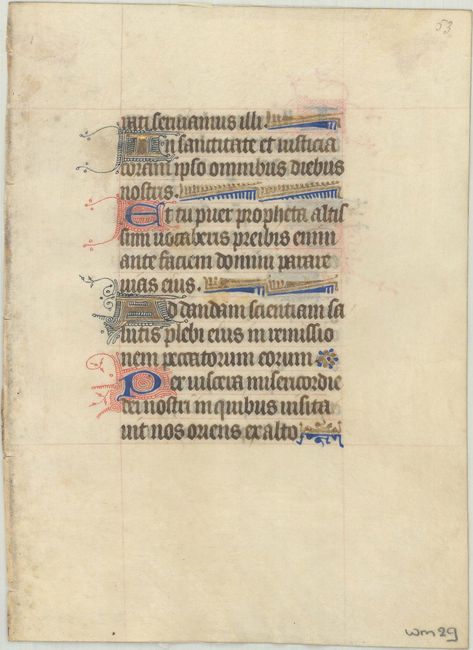 53
rati seruiamus illi.
In sanctitate et iusticia
coram ipso omnibus diebus
nostris.
Et tu puer propheta altis
simi uocaberis preibis enim
ante faciem domini parare
uias eius.
Ad dandam scientiam sa
lutis plebi eius in remissio
nem peccatorum eorum
Per uiscera misericordie
dei nostri in quibus uisita
uit nos oriens ex alto
wm29